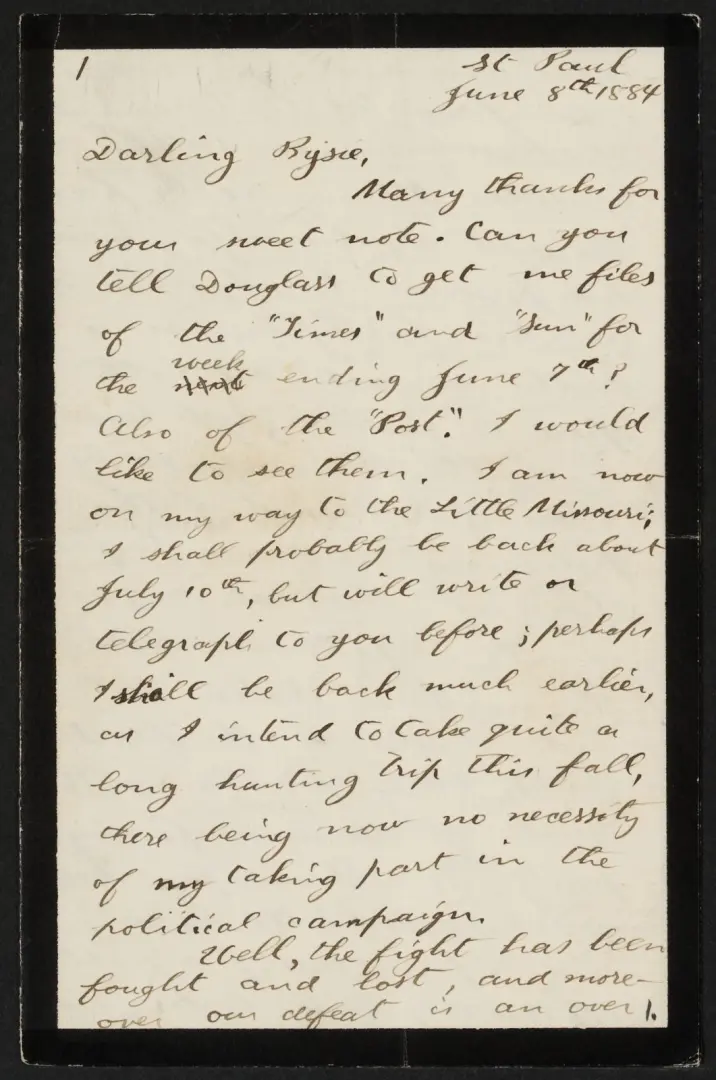 1
St Paul
June 8th 1884
Darling Bysie,
Many thanks for
your sweet note. Can you
tell Douglass to get me files
of the "Times" and "Sun" for
week
the ending June 7th?
Also of the "Post". I would
like to see them. I am now
on my way to the Little Missouri;
I shall probably be back about
July 10th, but will write or
telegraph to you before; perhaps
I shall be back much earlier,
as I intend to take quite a
long hunting trip this fall,
there being now no necessity
of my taking part in the
political campaign.
Well, the fight has been
fought and lost, and more-
over our defeat is an over